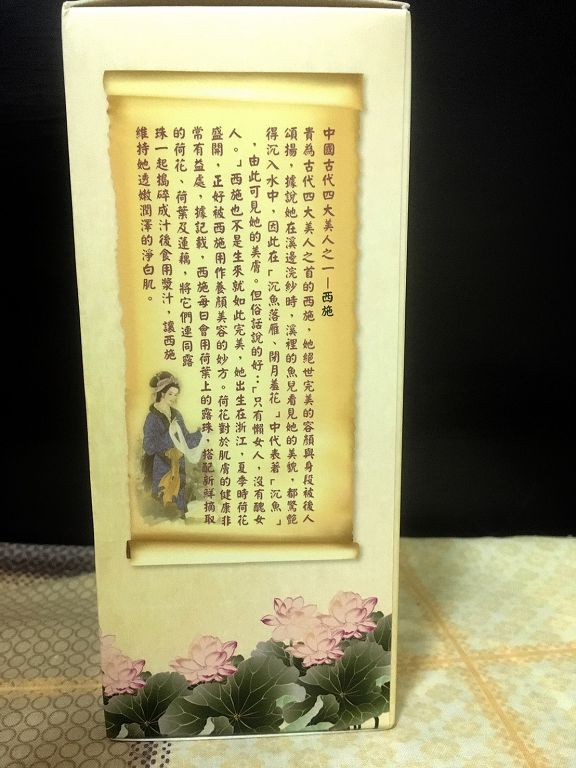 中國古代四大美人之一－西施
貴為古代四大美人之首的西施，她絕世完美的容顏與身段被後人
頌揚，據說她在溪邊浣紗時，溪裡的魚兒看見她的美貌，都驚艷
得沉入水中，因此在「沉魚落雁、閉月羞花」中代表著「沉魚」
，由此可見她的美膚。但俗話說的好：「只有懶女人，沒有醜女
人。」西施也不是生來就如此完美，她出生在浙江，夏季時荷花
盛開，正好被西施用作養顏美容的妙方。荷花對於肌膚的健康非
常有益處，據記載，西施每日會用荷葉上的露珠，搭配新鮮摘取
的荷花、荷葉及蓮藕，將它們連同露
珠一起搗碎成汁後食用漿汁，讓西施
維持她透嫩潤澤的淨白肌。